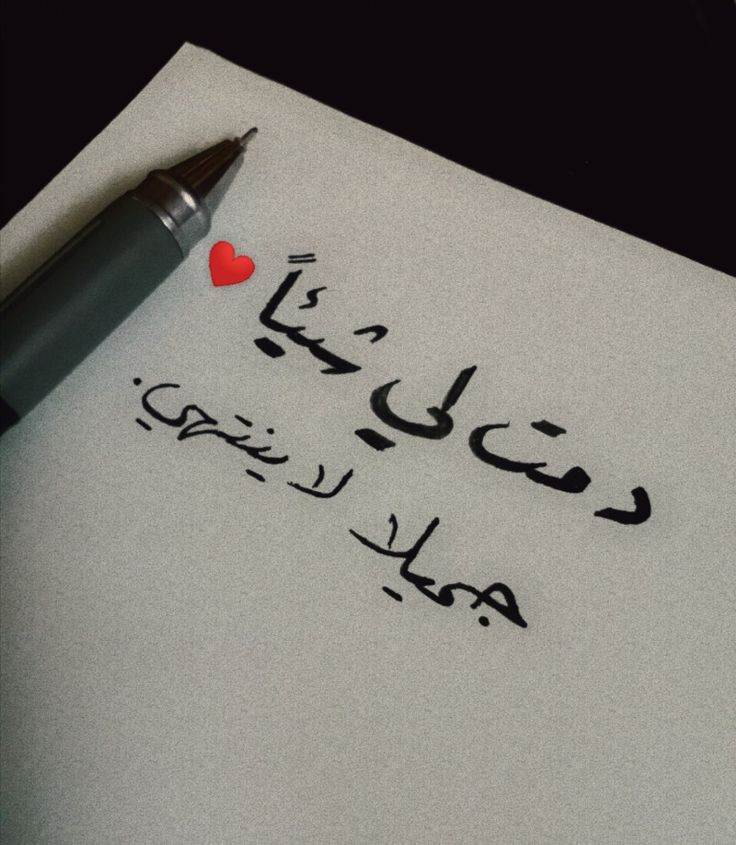 دمت لي شيئاً
جميلا لا ينتهي.